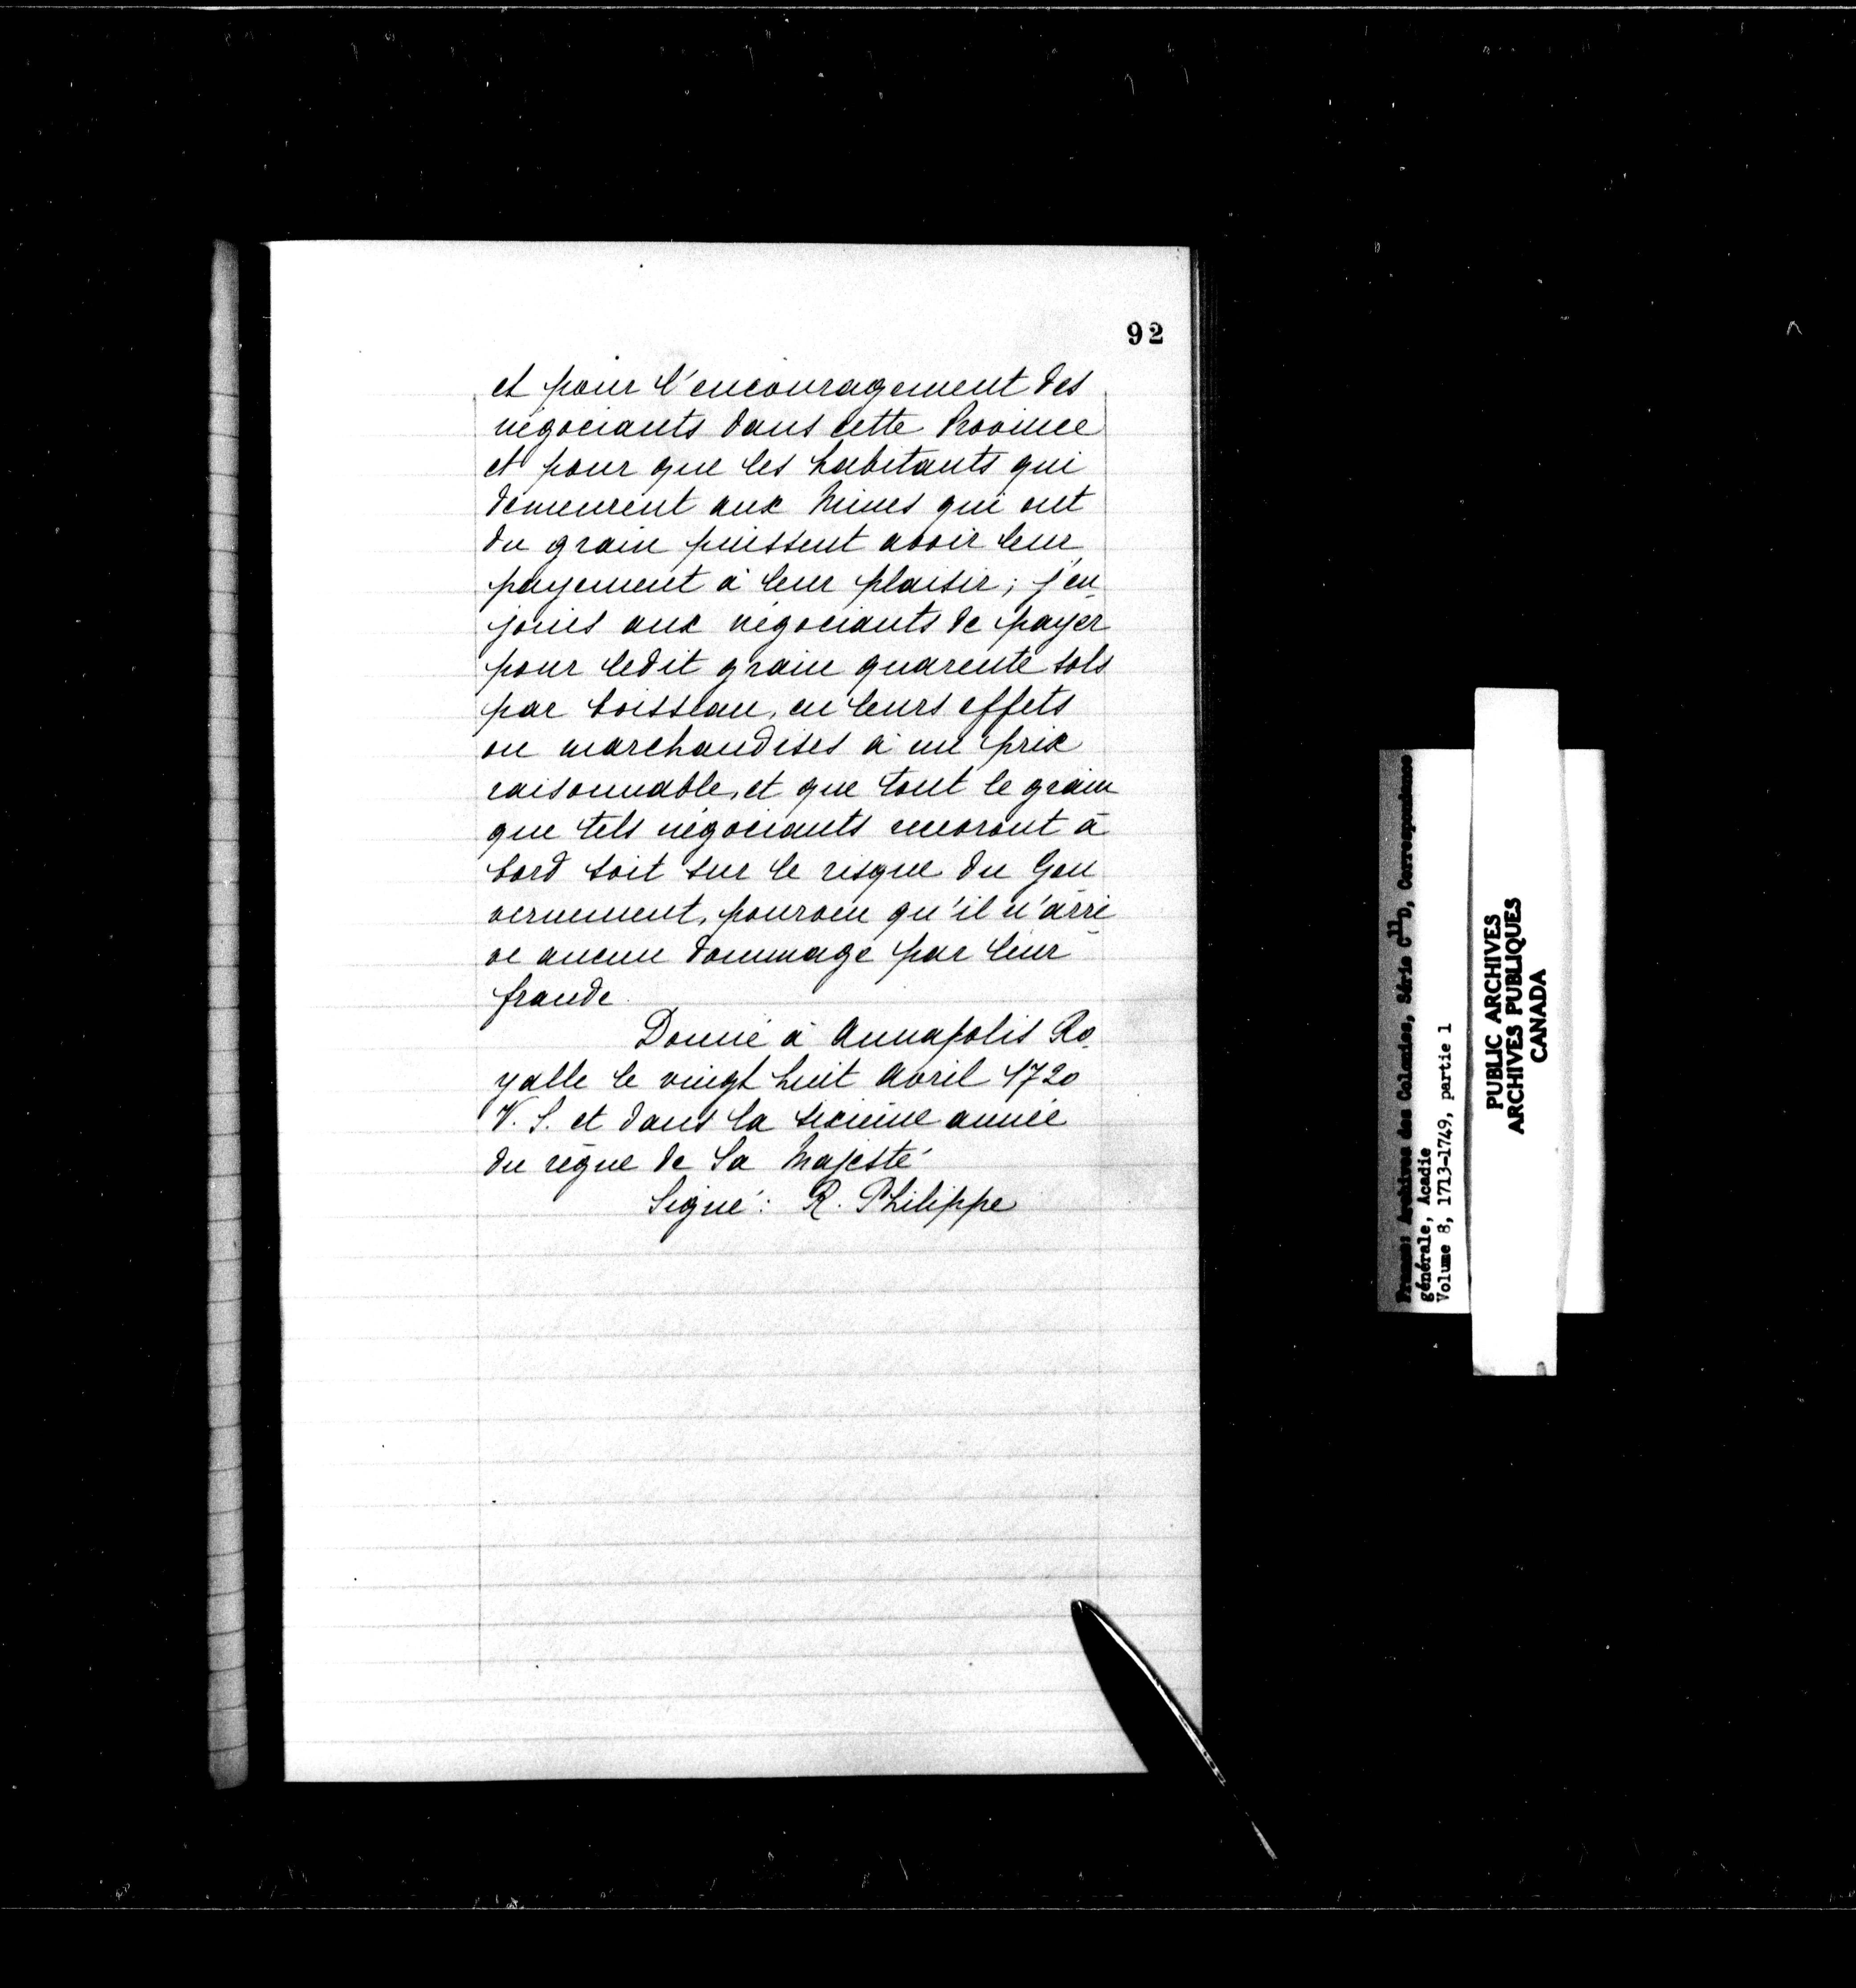 92
et pour l'encouragement des
négociants dans cette Province
et pour que les habitants qui
demeurent aux Mines qui ont
du grain puissent avoir leur
payement à leur plaisir; j'en-
joins aux négociants de payer
pour ledit grain quarente sols
par boisseau, en leurs effets
ou marchandises à un prix
raisonnable, et que tout le grain
que tels négociants auront à
bord soit sur le risque du Gou
vernement, pourveu qu'il n'arri-
ve aucun dommage par leur
fraude.
Donné à Annapolis Ro-
yalle le vingt huit Avril 1720
V. S. et dans la sixième année
du règne de Sa Majesté
Signé: R. Philippe
France: Archives des Colonies, Série C11D, Correspondance
générale, Acadie
Volume 8, 1713-1749, partie 1
PUBLIC ARCHIVES
ARCHIVES PUBLIQUES
CANADA